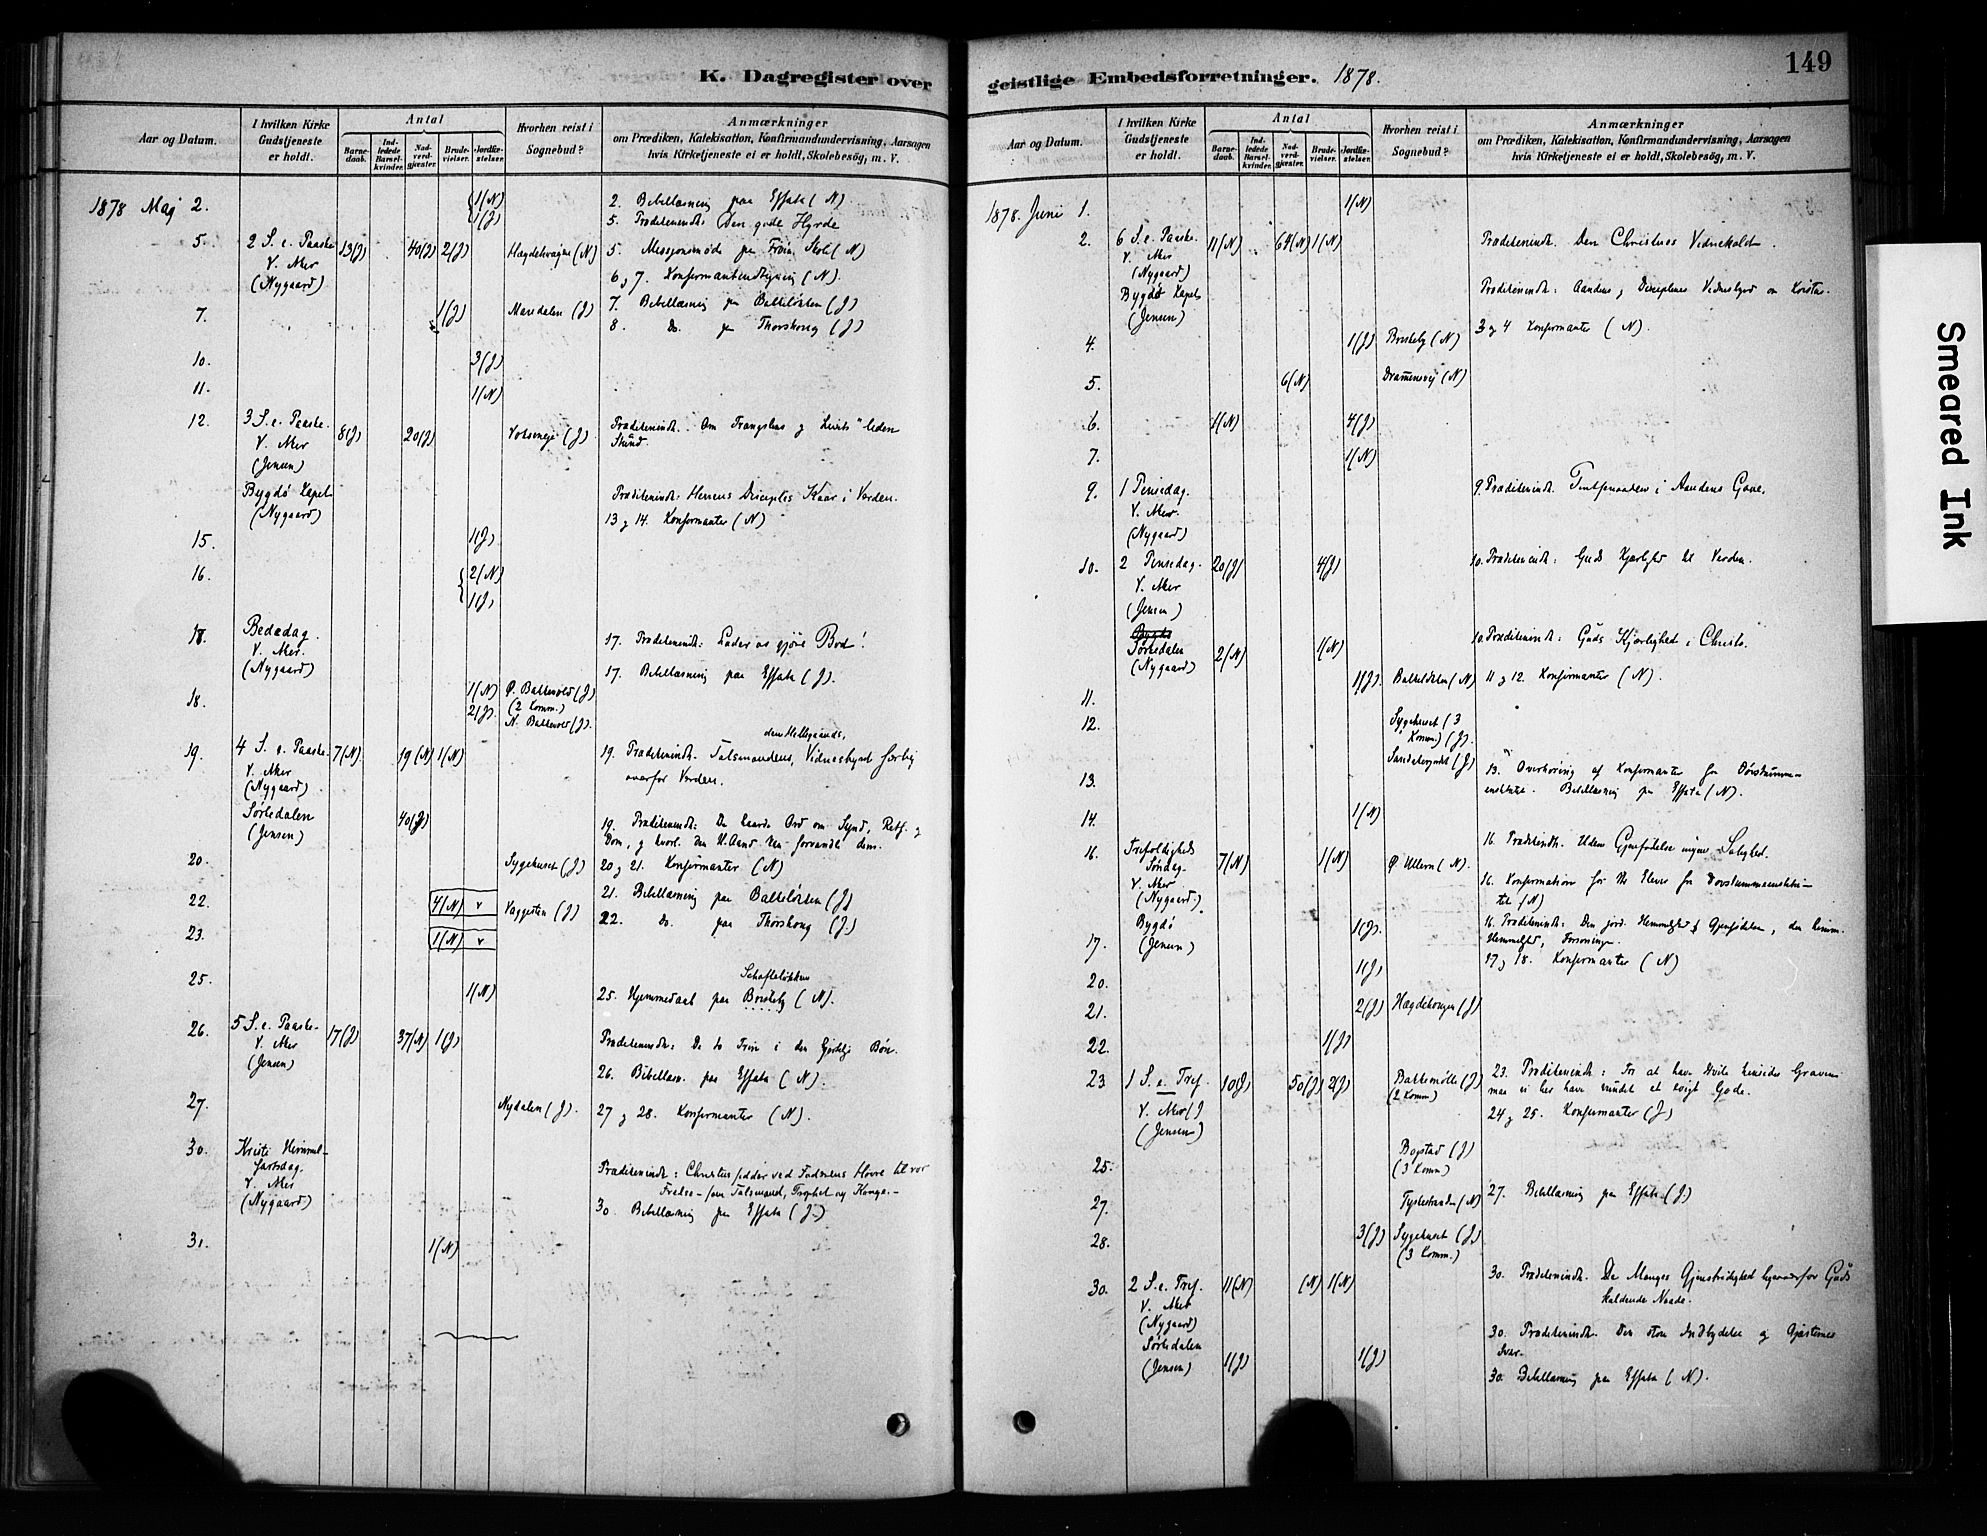 K. Dagregister over
Aar og Datum.
I hvilken Kirke Gudstjeneste er holdt.
Antal
Barnedaab.
Indledede Barselkvinder.
Nadverdgjæster.
Brudevielser.
Jordfæstelser.
Hvorhen reist i Sognebud?
Anmærkninger
om Prædiken, Katekisation, Konfirmandundervisning, Aarsagen
hvis Kirketjeneste ei er holdt, Skolebesög, m. V.
1878 Maj 2. 1(N) 2. Bibellæsning paa Effata (N)
1(J) 5. Prædikenindh: Den gode Hyrde
5. 2 S. e. Paaske 13(J) 40(J) 2(J) Hægdehaugen (N) 5. Missjonsmøde paa Skole (N)
V. Aker
(Nygaard) 6 og 7. Konfirmant (N).
7. 1(J) Maridalen (J) 7. Bibellæsning paa Bakkeløkken (J)
8. do. paa Thorshoug (J)
10. 3(J)
11. 1(N)
12. 3 S. e. Paaske. 8(J) 20(J) Voksenejе (J) Prædikenindh. Om Trængslens og Livets "liden
V. Aker Stund
(Jensen)
Bygdø Kapel Prædikenindh: Herrens Disciples Kaar i Verden.
(Nygaard) 13 og 14. Konfirmanter (N)
15. 1(J)
16. 2(N)
1(J)
17. Bededag. 17. Prædikenindh: Lader os gjøre Bod!
V. Aker.
(Nygaard) 17. Bibellæsning paa Effata (J).
18. 1(N) Ø. Bakkevold (J)
2(J). (2 Komm.)
N. Bakkevold (J).
19. 4 S. e. Paaske. 7(N). 19(N) 1(N) 19. Prædikenindh. Talsmandens, den Helligaands, Vidnesbyrd
V. Aker overfor Verden.
(Nygaard)
Sørkedalen 40(J) 19. Prædikenindh: De haarde Ord om Synd, Retf. og
(Jensen) Dom, og hvorl. den H. Aand kan forvandle dem.
20. Sygehuset (J) 20 og 21. Konfirmanter (N)
21. Bibellæsning paa Bakkeløkken (J)
22. 4(N) v Vaggesten (J) 22. do. paa Thorshoug (J)
23. 1(N) v
25. 1(N) 25. Hjemmedaab paa Borkeby Schafteløkken (N).
26. 5 S. e. Paaske. 17(J) 37(N) 1(J) Prædikenindh: De to Trin i den Bøn.
V. Aker
(Jensen) 26. Bibellæsn. paa Effata (N).
27. Nydalen (J). 27 og 28. Konfirmanter (N).
30. Kristi Himmel-
fartsdag.
V. Aker Prædikenindh: Christus sidder ved Faderens Høire til vor
(Nygaard) Frelse - som Talsmand, Prophet og Konge. -
30 Bibellæsning paa Effata (J.)
31. 1(N)
149
geistlige Embedsforretninger. 1878.
Aar og Datum.
I hvilken Kirke Gudstjeneste er holdt.
Antal
Barnedaab.
Indledede Barselkvinder.
Nadverdgjæster.
Brudevielser.
Jordfæstelser.
Hvorhen reist i Sognebud?
Anmærkninger
om Prædiken, Katekisation, Konfirmandundervisning, Aarsagen
hvis Kirketjeneste ei er holdt, Skolebesög, m. V.
1878. Juni 1. 1(N)
2. 6 S. e. Paaske. 11(N) 64(N) 1(N) Prædikenindh. Den Christnes Vidnekald.
V. Aker
(Nygaard)
Bygdø Kapel Prædikenindh: Aandens og Disciplenes Vidnesbyrd om Kristus.
(Jensen)
4. 1(J) Borkeby (N) 3 og 4 Konfirmanter (N).
5. 6(N) Drammensvej (N)
6. 1(N) 4(J)
7. 1(N)
9. 1 Pinsedag. 9. Prædikenindh. i Aandens Gave.
V. Aker.
(Nygaard)
10. 2 Pinsedag. 20(J) 4(J) 10. Prædikenindh: Guds Kjærlighed til Verden.
V. Aker
(Jensen)
Bygdø
Sørkedalen 2(N) 1(N) 10. Prædikenindh: Guds Kjærlighed i Christo.
(Nygaard)
11. 1(J). Bakkeløkken (N) 11 og 12. Konfirmanter (N).
12. Sygehuset (3
Komm.) (J).
13. (J) 13. Overhøring af Konfirmanter fra Døvstumme-
institutet. Bibellæsning paa Effata (N).
14. 1(N)
16. Trefoldigheds 7(N) 1(N) Ø. Ullern (N). 16. Prædikenindh. Uden Gjenfødelse ingen Salighed.
Søndag.
V. Aker 16. Konfirmation for Elever fra Døvstummeinstitu-
(Nygaard.) tet (N)
Bygdø 1(J). 16. Prædikenindh: Den jord. Hemmelighed, Gjenfødelsen, den himm.
17. (Jensen) Hemmelighed, Forsoningen.
1(J) 17 og 18. Konfirmanter (N)
20.
21. 2(J) Hægdehougen (J)
22. 1(J)
23 1 S. e. Tref. 10(J) 50(J) 2(J) Bakkemølle (J) 23. Prædikenindh: For at have Hvile hinsides Graven
V. Aker (2 Komm) maa vi her have vundet et evigt Gode.
(Jensen) 24 og 25. Konfirmanter (J)
25. Bogstad (J)
(3 Komm)
27. Tyskestranden (N) 27. Bibellæsning paa Effata (J)
28. 3(J) Sygehuset (J)
(3 Komm.)
30. 2 S. e. Tref. 11(N) (N) 1(N) 30. Prædikenindh. De Manges Gjenstridighed ligeoverfor Guds
V. Aker kaldende Naade.
(Nygaard)
Sørkedalen 1(J) 1(J) 30. Prædikenindh. Den store Indbydelse og Gjæsternes
(Jensen) Svar.
30. Bibellæsning paa Effata (N).
Smeared Ink